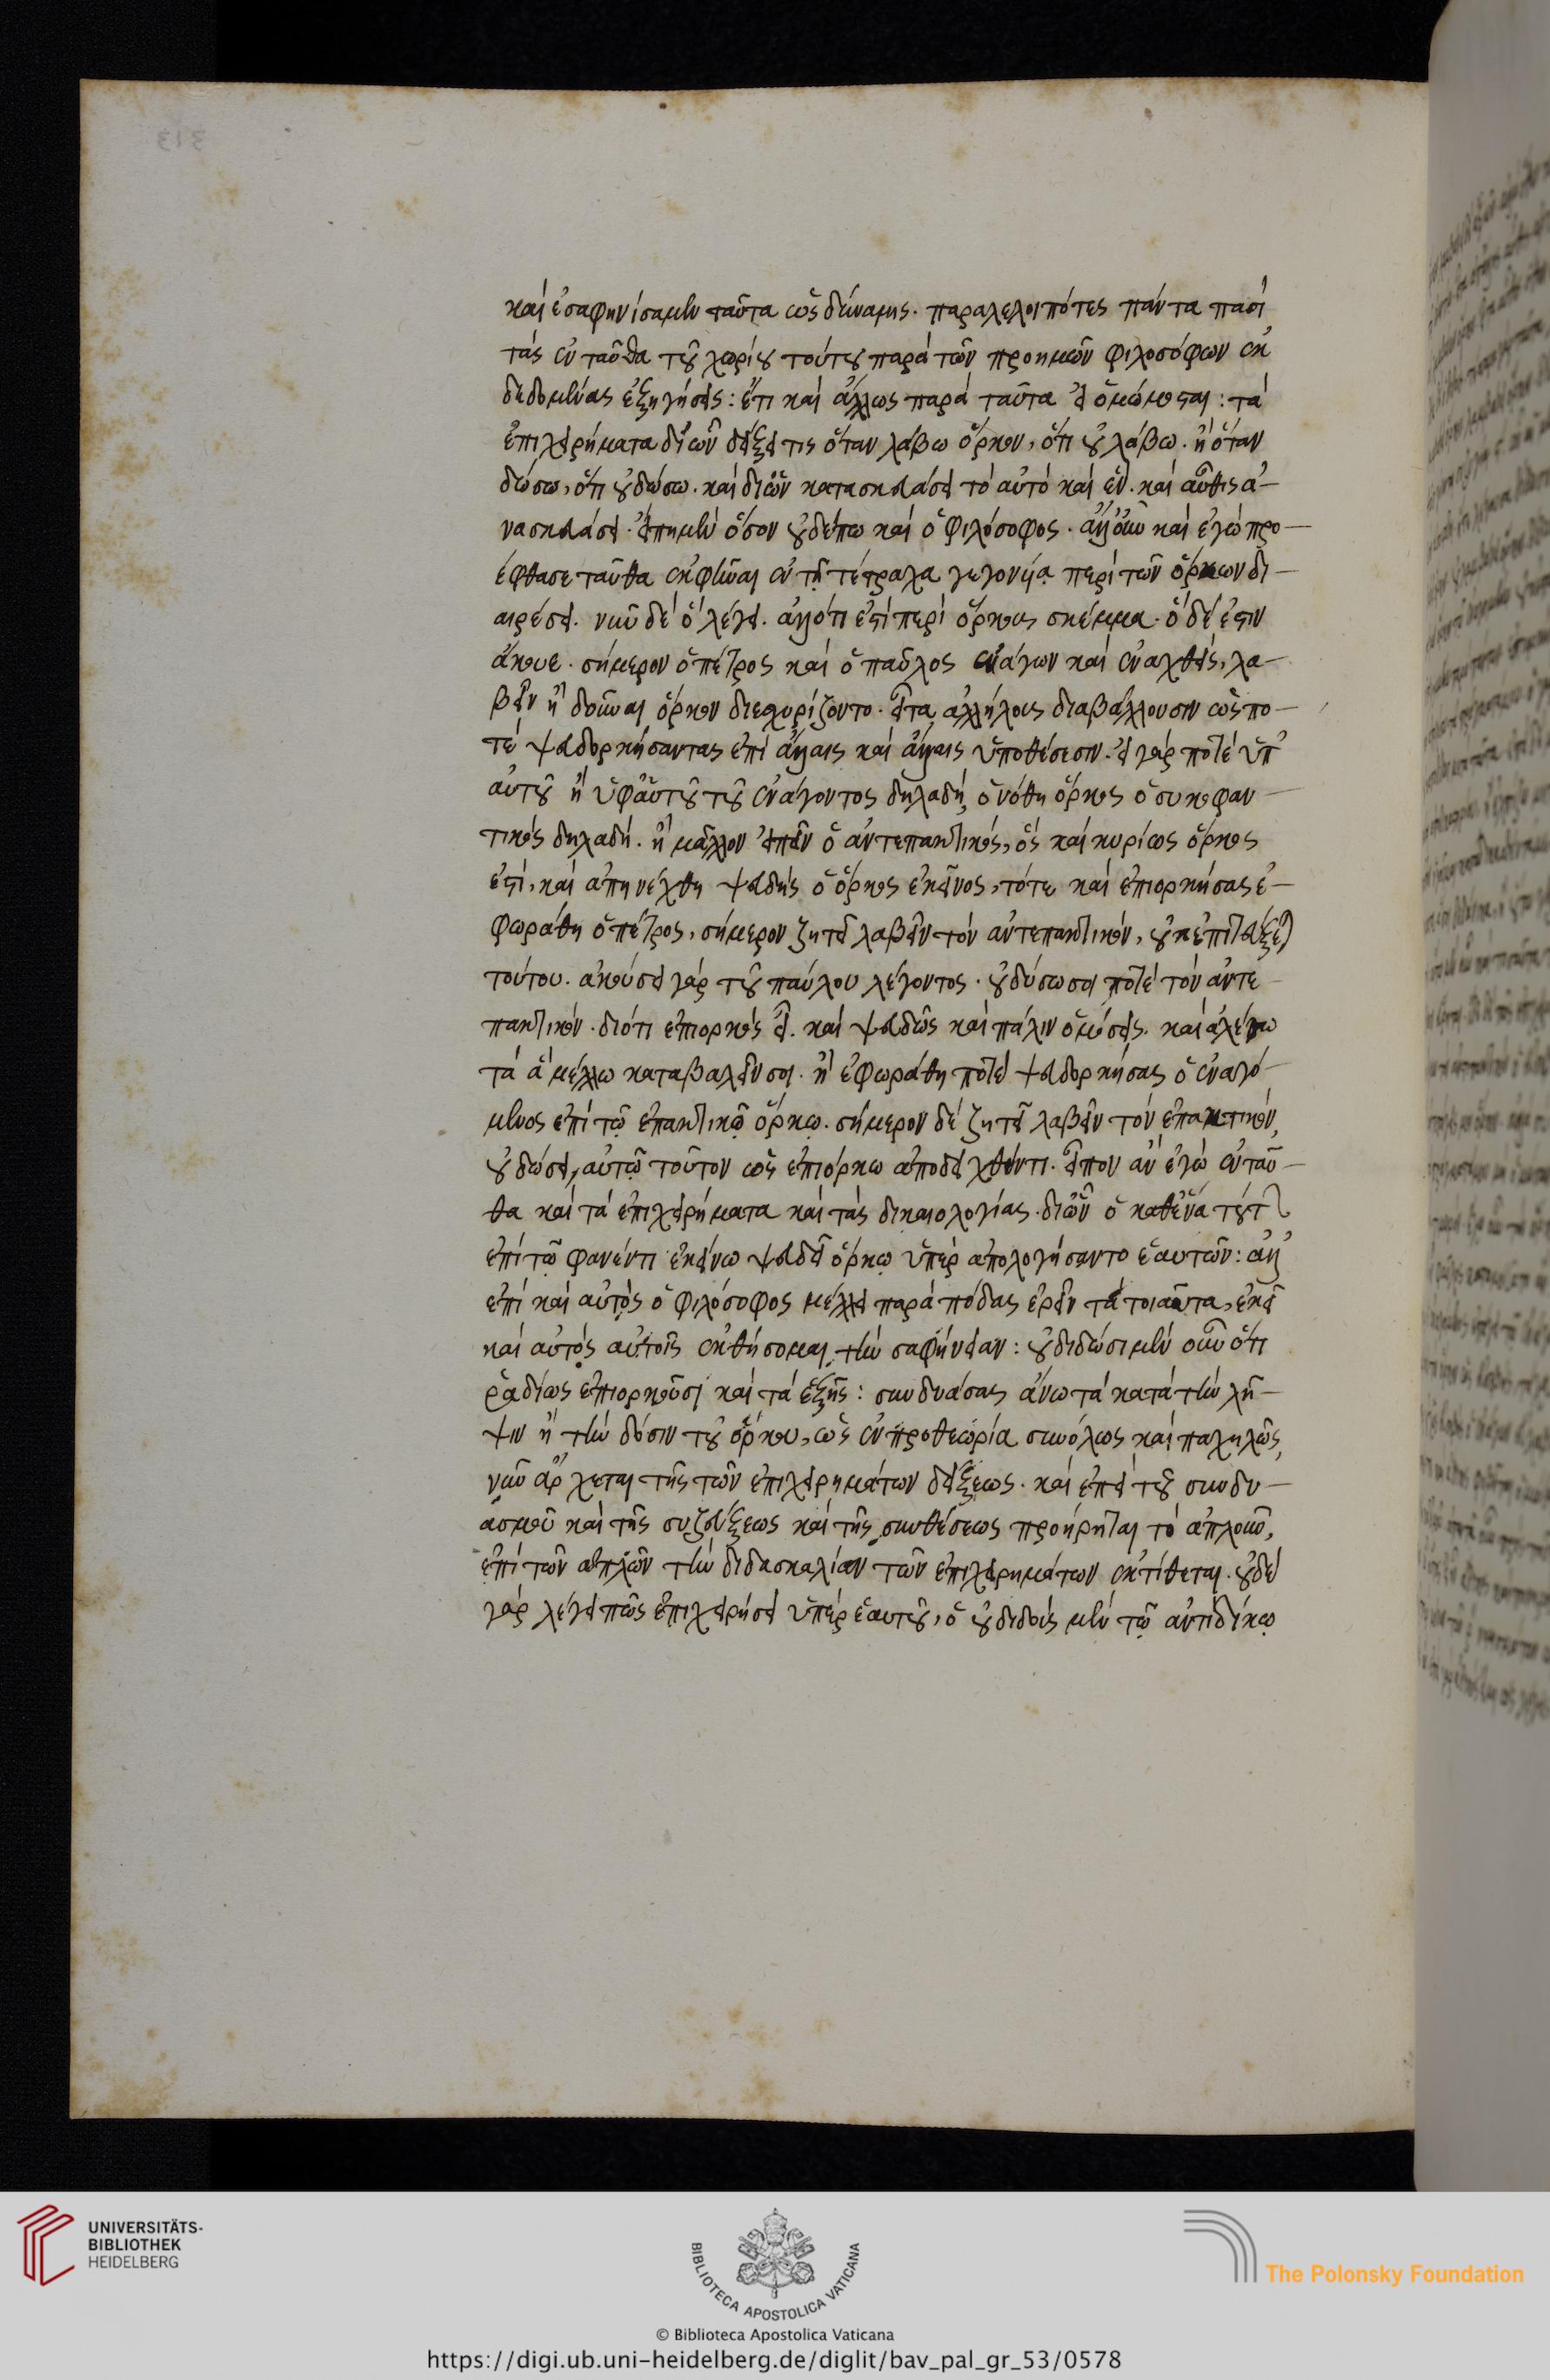 καὶ ἐσαφηνίσαμεν ταῦτα ὡς δύναμης. παραλελοιπότες πάντα πασὶ
τὰς ἐνταῦθα τοῦ χωρίου τούτου παρὰ τῶν προημῶν φιλοσόφων ἐκ
δεδομένας ἐξηγήσεις: ἔτι καὶ ἄλλως παρὰ ταῦτα εἰ ὀμώμοσται: τὰ
ἐπιχειρήματα δι' ὧν δείξει τις ὅταν λάβω ὅρκον, ὅτι οὐ λάβω. ἢ ὅταν
δώσω, ὅτι οὐ δώσω. καὶ δι' ὧν κατασκευάσει τὸ αὐτὸ καὶ ἓν. καὶ αὖθις ἀ-
νασκευάσει. εἴπημεν ὅσον οὐδέπω καὶ ὁ φιλόσοφος. ἀλλ' οὖν καὶ ἐγὼ προ-
έφθασε ταῦθα ἐκφῆναι ἐν τῇ τέτραχα γεγονυίᾳ περὶ τῶν ὅρκων δι-
αιρέσει. νῦν δὲ ὃ λέγει. ἀλλ' ὅτι ἐστὶ περὶ ὅρκους σκέμμα. ὃ δέ ἐστιν
ἄκουε. σήμερον ὁ πέτρος καὶ ὁ παῦλος ἐνάγων καὶ ἐναχθεὶς, λα-
βεῖν ἢ δοῦναι ὅρκον διεσχυρίζοντο. εἶτα ἀλλήλους διαβάλλουσιν ὥς πο-
τὲ ψευδορκήσαντας ἐπὶ ἄλλαις καὶ ἄλλαις ὑποθέσεσιν. εἰ γὰρ ποτὲ ὑπ'
αὐτοῦ ἢ ὑφ' αὑτοῦ τοῦ ἐνάγοντος δηλαδὴ, ὁ νόθη ὅρκος ὁ συκοφαν-
τικὸς δηλαδή. ἢ μᾶλλον εἰπεῖν ὁ ἀντεπακτικὸς, ὃς καὶ κυρίως ὅρκος
ἐστὶ, καὶ ἀπηνέχθη ψευδὴς ὁ ὅρκος ἐκεῖνος, τότε καὶ ἐπιορκήσας ἐ-
φωράθη ὁ πέτρος, σήμερον ζητεῖ λαβεῖν τὸν ἀντεπακτικὸν, οὐκ ἐπιτεύξεται
τούτου. ἀκούσει γὰρ τοῦ παύλου λέγοντος. οὐ δώσω σοι ποτὲ τὸν ἀντε-
πακτικόν. διότι ἐπιορκὸς εἶ. καὶ ψευδῶς καὶ πάλιν ὀμόσεις.
τὰ ἃ μέλλω καταβαλεῖν σοι. ἢ ἐφωράθη ποτὲ ψευδορκήσας ὁ ἐναγό-
μενος ἐπὶ τῷ ἐπακτικῷ ὅρκῳ. σήμερον δὲ ζητεῖ λαβεῖν τὸν ἐπακτικόν,
οὐ δώσει, αὐτῷ τοῦτον ὡς ἐπιόρκω ἀποδειχθέντι. εἶπον ἂν ἐγὼ ἐνταῦ-
θα καὶ τὰ ἐπιχειρήματα καὶ τὰς δικαιολογίας. δι' ὧν ὁ καθένα τούτ
ἐπὶ τῷ φανέντι ἐκείνω ψευδεῖ ὅρκῳ ὑπὲρ ἀπολογήσαντο ἑαυτῶν: ἀλλ'
ἐπὶ καὶ αὐτὸς ὁ φιλόσοφος μέλλει παρὰ πόδας ἐρεῖν τὰ τοιαῦτα, ἐκεῖ
καὶ αὐτὸς αὐτοῖς ἐκθήσομαι τὴν σαφήνειαν: οὐ δίδωσι μὲν οὖν ὅτι
ῥαδίως ἐπιορκοῦσι καὶ τὰ ἑξῆς: συνδυάσας ἄνω τὰ κατὰ τὴν λῆ-
ψιν ἢ τὴν δόσιν τοῦ ὅρκου, ὡς ἐν προθεωρία συνόλως καὶ παχυλῶς,
νῦν ἄρχεται τῆς τῶν ἐπιχειρημάτων δείξεως. καὶ ἐπεὶ τοῦ συνδυ-
ασμοῦ καὶ τῆς συζεύξεως καὶ τῆς συνθέσεως προήρηται τὸ ἁπλοῦν,
ἐπὶ τῶν ἁπλῶν τὴν διδασκαλίαν τῶν ἐπιχειρημάτων ἐκτίθεται. οὐδὲ
γὰρ λέγει πῶς ἐπιχειρήσει ὑπὲρ ἑαυτοῦ, ὁ οὐ διδοὺς μὲν τῷ ἀντιδίκῳ
UNIVERSITÄTS-
BIBLIOTHEK
HEIDELBERG
BIBLIOTECA APOSTOLICA VATICANA
The Polonsky Foundation
© Biblioteca Apostolica Vaticana
https://digi.ub.uni-heidelberg.de/diglit/bav_pal_gr_53/0578